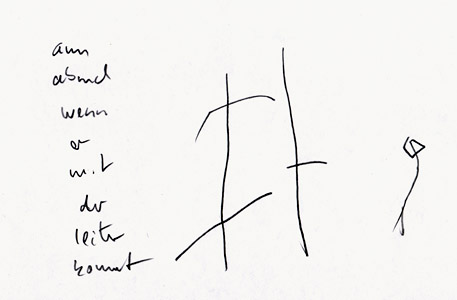 am
abend
wenn
er
mit
der
leiter
kommt